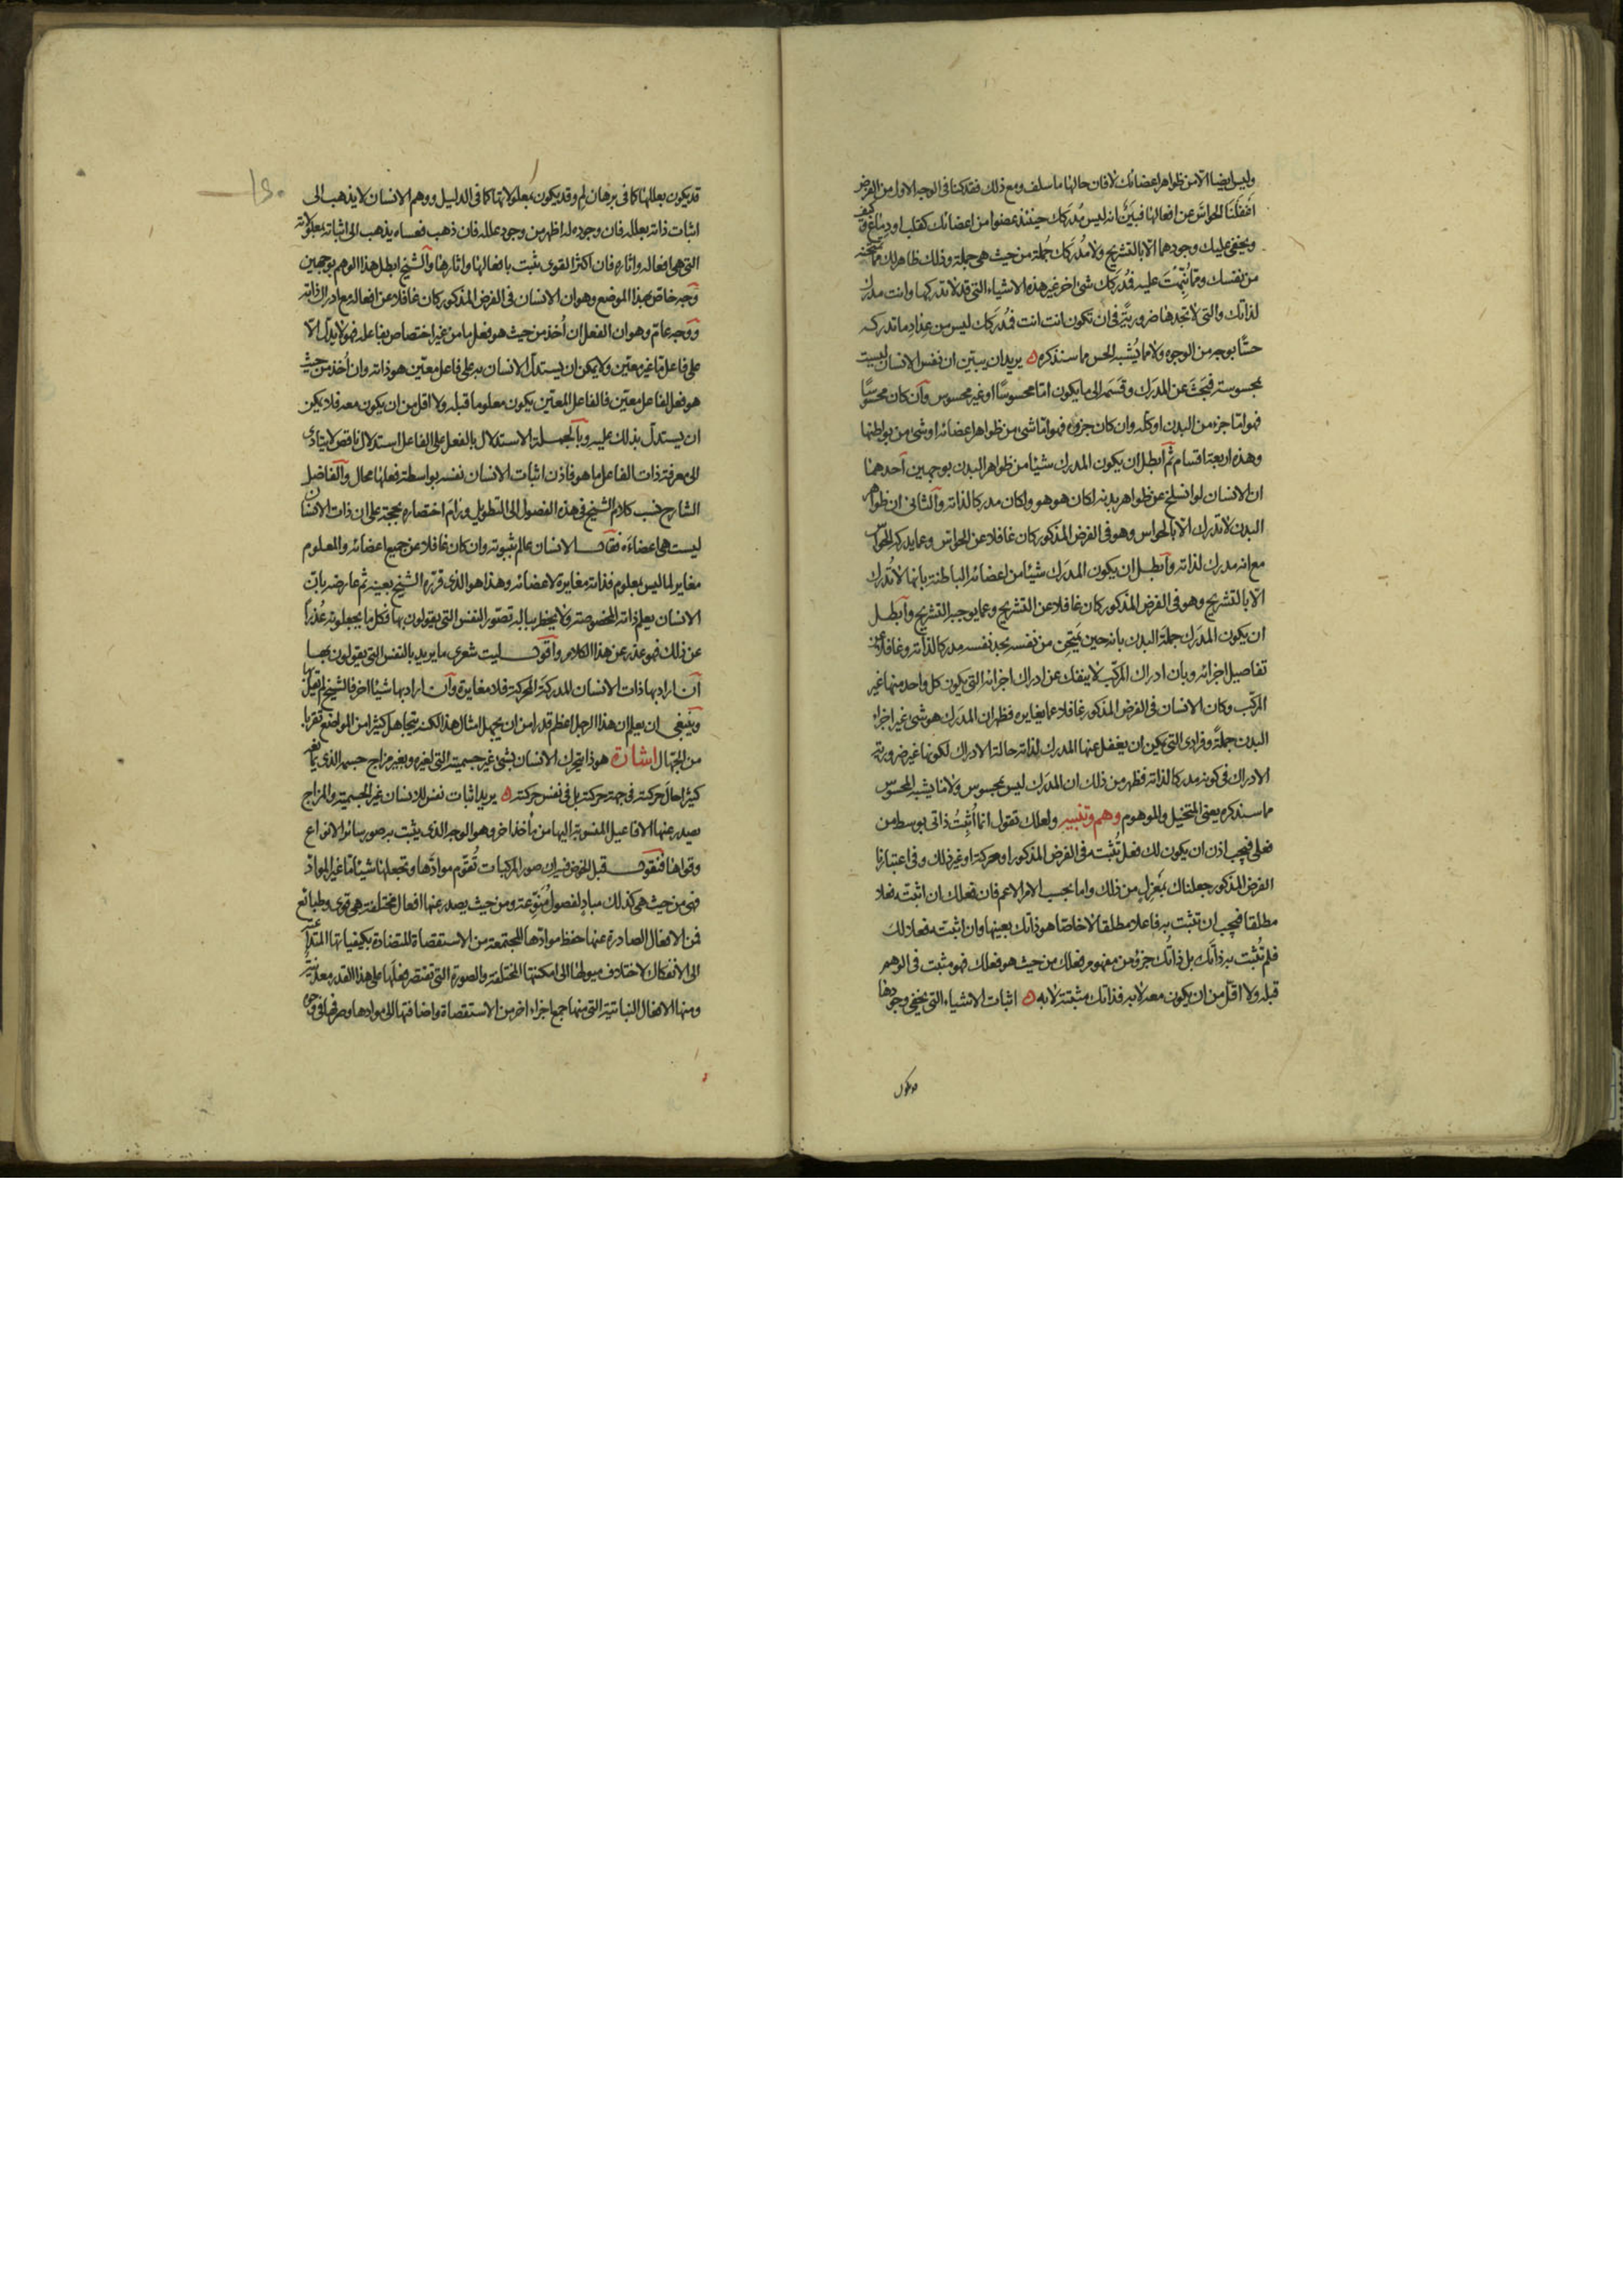 وليس ايضا الا من ظواهر اعضائك لا فان حالها ما سلف ومع ذلك فقد كنا فى الوجه الاول من الفرض
اغفلنا الحواس عن افعالها فبين انه ليس مدركك حينئذ عضوا من اعضائك كقلب او دماغ وكيف
ويخفى عليك وجودهما الا بالتشريح ولا مدركك جملة من حيث هى جملة وذلك ظاهر لك مما تمتحنه
من نفسك ومما نبهت عليه فمدركك شئ اخر غير هذه الاشياء التى قد لا تدركها وانت مدرك
لذاتك والتى لا تجدها ضرورية فى ان تكون انت انت فمدركك ليس من عداد ما تدركه
حسا بوجه من الوجوه ولا مما يشبه الحس مما سنذكره ه يريد ان يبين ان نفس الانسان ليست
بمحسوسة فبحث عن المدرك وقسمه الى ما يكون اما محسوسا او غير محسوس وان كان محسوسا
فهو اما جزء من البدن او كله وان كان جزؤه فهو اما شئ من ظواهر اعضائه او شئ من بواطنها
وهذه اربعة اقسام ثم ابطل ان يكون المدرك شيئا من ظواهر البدن بوجهين احدهما
ان الانسان لو انسلخ عن ظواهر بدنه لكان هو هو ولكان مدركا لذاته والثانى ان ظواهر
البدن لا تدرك الا بالحواس وهو فى الفرض المذكور كان غافلا عن الحواس وعما يدركه الحواس
مع انه مدرك لذاته وابطل ان يكون المدرك شيئا من اعضائه الباطنة بانها لا تدرك
الا بالتشريح وهو فى الفرض المذكور كان غافلا عن التشريح وعما يوجبه التشريح وابطل
ان يكون المدرك جملة البدن بانه حين يمتحن من نفسه يجد نفسه مدركا لذاته وغافلا عن
تفاصيل اجزائه وبان ادراك المركب لا ينفك عن ادراك اجزائه التى يكون كل واحد منها غير
المركب وكان الانسان فى الفرض المذكور غافلا عما يغايره فظهر ان المدرك هو شئ غير اجزاء
البدن جملة وفرادى التى يمكن ان يغفل عنها المدرك لذاته حالة الادراك لكونها غير ضرورية
الادراك فى كونه مدركا لذاته فظهر من ذلك ان المدرك ليس بمحسوس ولا مما يشبه المحسوس
مما سنذكره يعنى المتخيل والموهوم وهم وتنبيه ولعلك تقول انما أثبت ذاتى بوسط من
فعلى فيجب اذن ان يكون لك فعل تثبته فى الفرض المذكور او حركة او غير ذلك وفى اعتبارنا
الفرض المذكور جعلناك بمعزل من ذلك واما بحسب الامر الاعم فان فعلك ان اثبته فعلا
مطلقا فيجب ان تثبت به فاعلا مطلقا لا خاصا هو ذاتك بعينها وان اثبته فعلا لك
فلم تثبت به ذاتك بل ذاتك جزؤ من مفهوم فعلك من حيث هو فعلك فهو مثبت فى الوهم
قبله ولا اقل من ان يكون معه لا به فذاتك مثبتة لا به ه اثبات الاشياء التى يخفى وجودها
قد يكون بعللها كما فى برهان لم وقد يكون بمعلولاتها كما فى الدليل ووهم الانسان لا يذهب الى
اثبات ذاته بعلله فان وجوده له اظهر من وجود علله فان ذهب فعساه يذهب الى اثباته بمعلولاته
التى هى افعاله واثاره فان اكثر القوى يثبت بافعالها واثارها والشيخ ابطل هذا الوهم بوجهين
وجه خاص بهذا الموضع وهو ان الانسان فى الفرض المذكور كان غافلا عن افعاله مع ادراك ذاته
ووجه عام وهو ان الفعل ان أخذ من حيث هو فعل ما من غير اختصاص بفاعله فهو لا يدل الا
على فاعل ما غير معين ولا يمكن ان يستدل الانسان به على فاعل معين هو ذاته وان أخذ من حيث
هو فعل لفاعل معين فالفاعل المعين يكون معلوما قبله ولا اقل من ان يكون معه فلا يمكن
ان يستدل بذلك عليه وبالجملة الاستدلال بالفعل على الفاعل استدلال ناقص لا يتادى
الى معرفة ذات الفاعل ما هو فاذن اثبات الانسان نفسه بواسطة فعلها محال والفاضل
الشارح نسب كلام الشيخ فى هذه الفصول الى التطويل ورام اختصاره بحجة على ان ذات الانسان
ليست هى اعضاءه فقال الانسان عالم بثبوته وان كان غافلا عن جميع اعضائه والمعلوم
مغاير لما ليس بمعلوم فذاته مغايرة لاعضائه وهذا هو الذى قرره الشيخ بعينه ثم عارضه بان
الانسان يعلم ذاته المخصوصة ولا يخطر بباله تصور النفس التى يقولون بها فكل ما يجعلونه عذرا
عن ذلك فهو عذر عن هذا الكلام واقول ليت شعرى ما يريد بالنفس التى يقولون بها
ان اراد بها ذات الانسان المدركة المحركة فلا مغايرة وان اراد بها شيئا اخر فالشيخ لم يقل بها
وينبغى ان يعلم ان هذا الرجل اعظم قدرا من ان يجهل امثال هذا لكنه يتجاهل كثيرا من المواضع تقربا
من الجهال اشارة هو ذا يتحرك الانسان بشئ غير جسميته التى لغيره وبغير مزاج جسمه الذى يمانعه
كثيرا حال حركته فى جهة حركته بل فى نفس حركته ه يريد اثبات نفس للانسان غير الجسمية والمزاج
يصدر عنها الافاعيل المنسوبة اليها من مأخذ اخر وهو الوجه الذى يثبت به صور سائر الانواع
وقواها فنقول قبل الخوض فيه ان صور المركبات تقوم موادها وتجعلها شيئا ما غير المواد
فهى من حيث هى كذلك مباد لفصول منوعة ومن حيث يصدر عنها افعال مختلفة هى قوى وطبائع
فمن الافعال الصادرة عنها حفظ موادها المجتمعة من الاستقصاة المتضادة بكيفياتها المتداعية
الى الانفكاك لاختلاف ميولها الى امكنتها المختلفة والصورة التى تقتصر فعلها على هذا القدر معدنية
ومنها الافعال النباتية التى منها جمع اجزاء اخر من الاستقصاة واضافتها الى موادها وصرفها فى وجوه